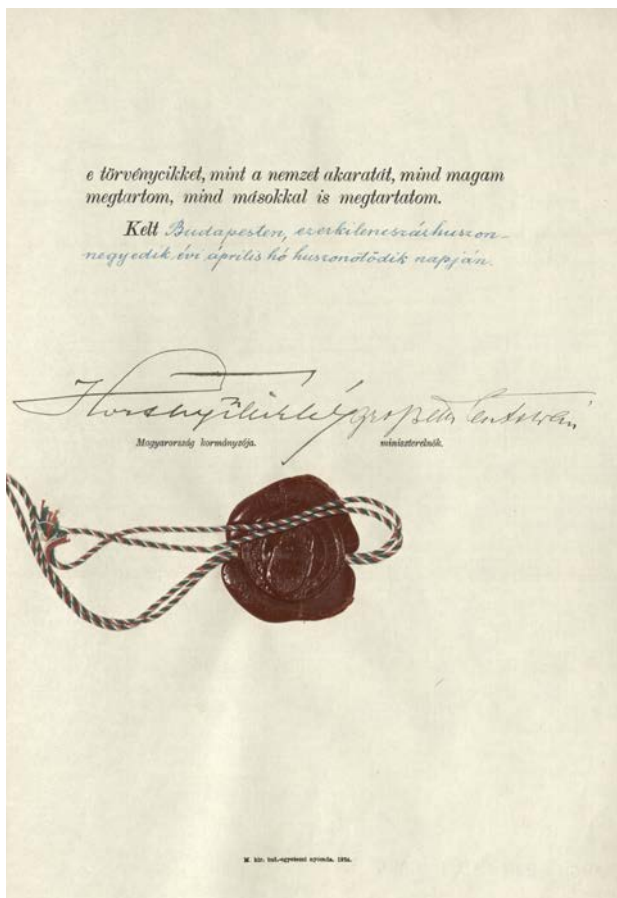 e törvénycikket, mint a nemzet akaratát, mind magam
megtartom, mind másokkal is megtartatom.
Kelt Budapesten, ezerkilencszázhuszon-
negyedik évi április hó huszonötödik napján.
Horthy Miklós gróf Bethlen István
Magyarország kormányzója. miniszterelnök.
M. kir. tud.-egyetemi nyomda. 1924.